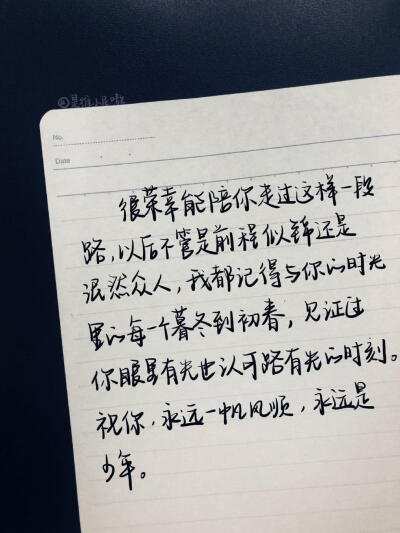 No.
Date
很荣幸能陪你走过这样一段
路,以后不管是前程似锦还是
泯然众人,我都记得与你的时光
里的每一个暮冬到初春,见证过
你眼里有光也认可路有光的时刻。
祝你,永远一帆风顺,永远是
少年。